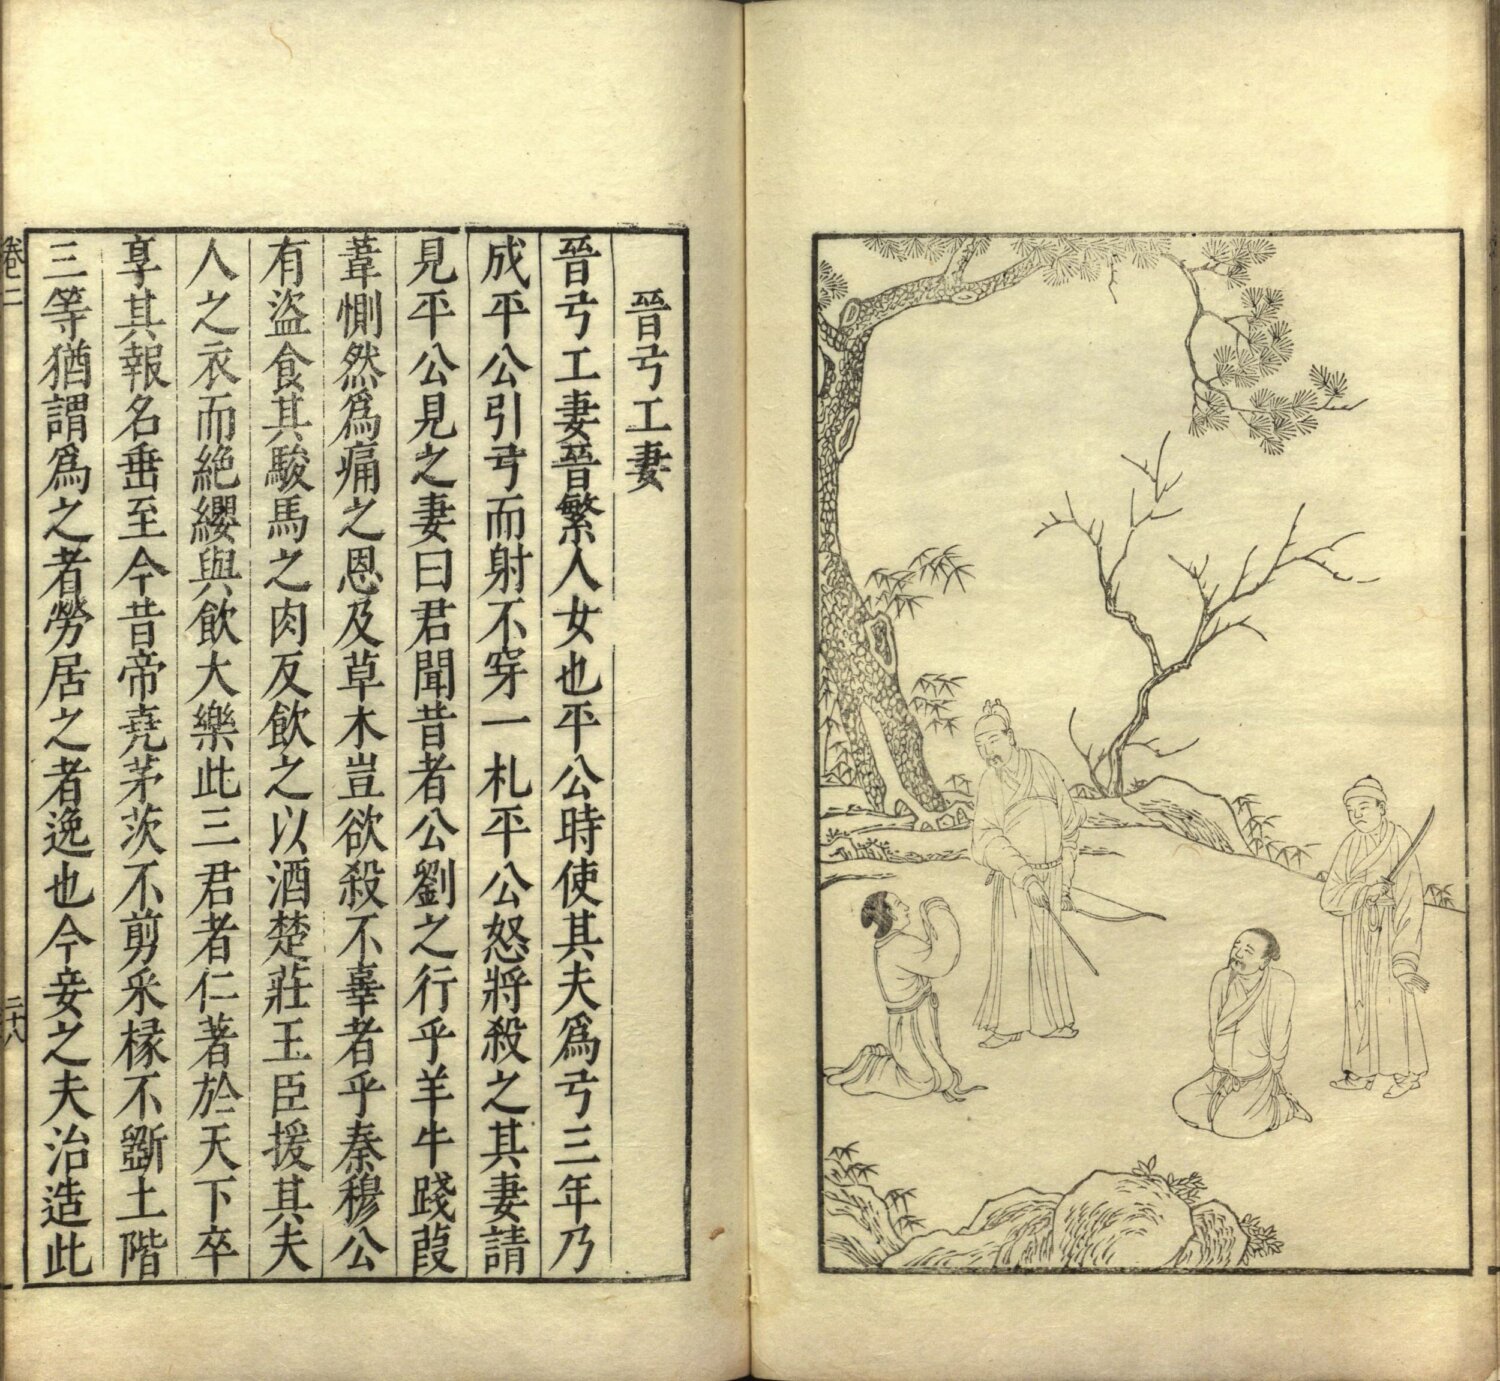 晉弓工妻
晉弓工妻晉繁人女也平公時使其夫爲弓三年乃
成平公引弓而射不穿一札平公怒將殺之其妻請
見平公見之妻曰君聞昔者公劉之行乎羊牛踐葭
葦惻然爲痛之恩及草木豈欲殺不辜者乎秦穆公
有盜食其駿馬之肉反飲之以酒楚莊王臣援其夫
人之衣而絕纓與飲大樂此三君者仁著於天下卒
享其報名垂至今昔帝堯茅茨不剪采椽不斵土階
三等猶謂爲之者勞居之者逸也今妾之夫治造此
卷二
二十八